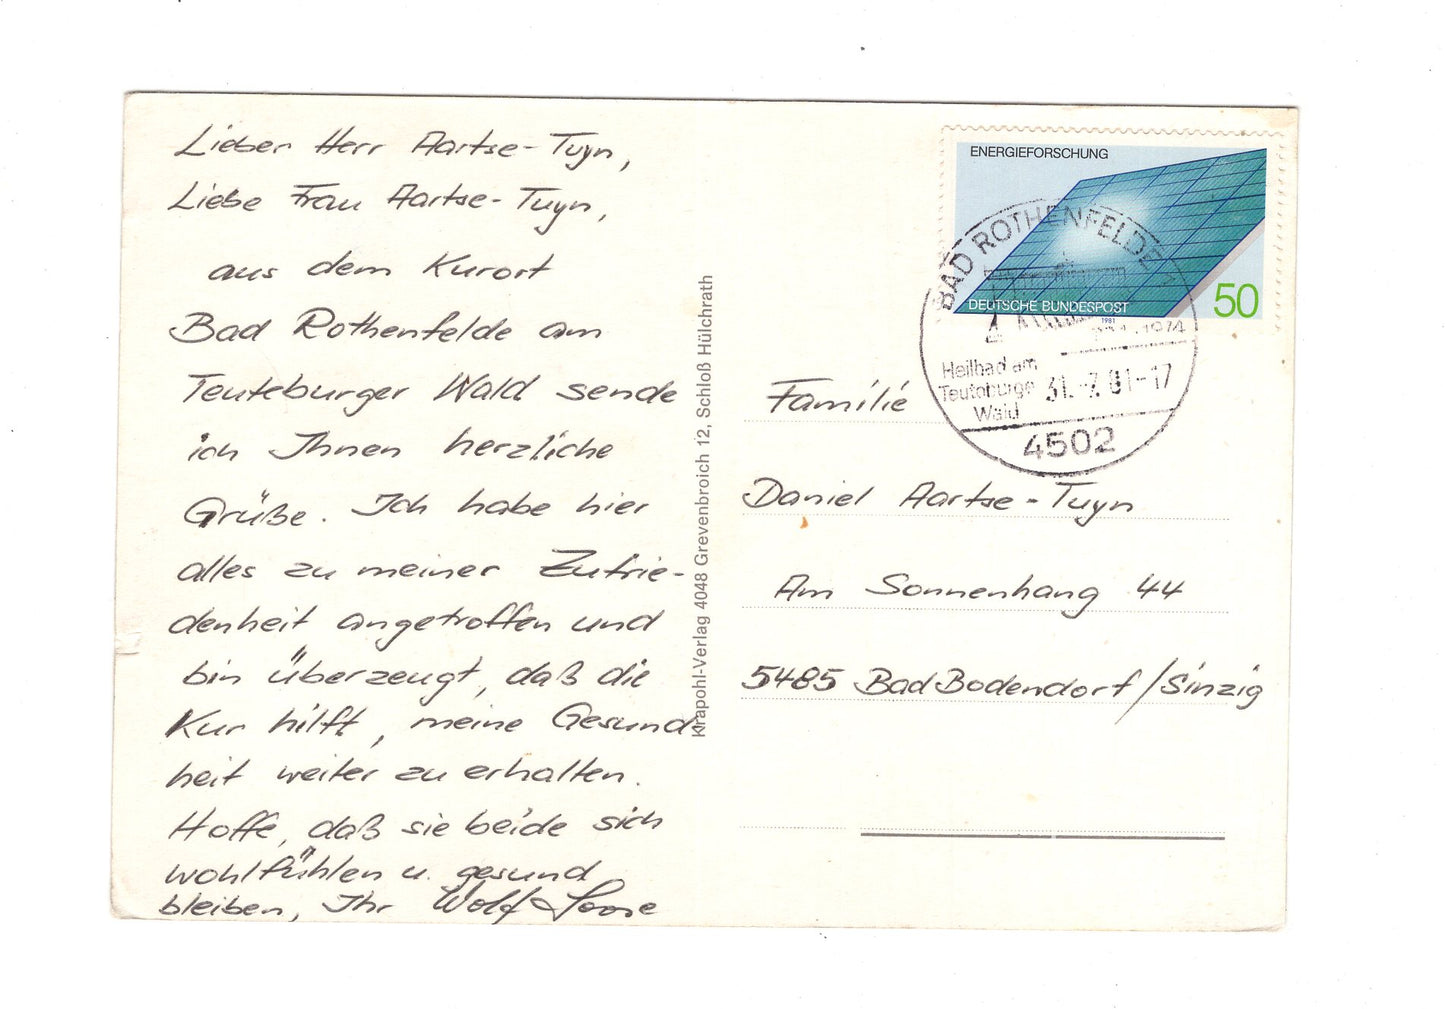 Lieber Herr Aartse-Tuyn,
Liebe Frau Aartse-Tuyn,
aus dem Kurort
Bad Rothenfelde am
Teuteburger Wald sende
ich Ihnen herzliche
Grüße. Ich habe hier
alles zu meiner Zufrie-
denheit angetroffen und
bin überzeugt, daß die
Kur hilft, meine Gesund-
heit weiter zu erhalten.
Hoffe, daß sie beide sich
wohlfühlen u. gesund
bleiben, Ihr Wolf
Krapohl-Verlag 4048 Grevenbroich 12, Schloß Hülchrath
ENERGIEFORSCHUNG
DEUTSCHE BUNDESPOST
50
1981
BAD ROTHENFELDE
1974
Heilbad am
Teutoburger
Wald
31.-7.81-17
4502
Familie
Daniel Aartse-Tuyn
Am Sonnenhang 44
5485 Bad Bodendorf/Sinzig